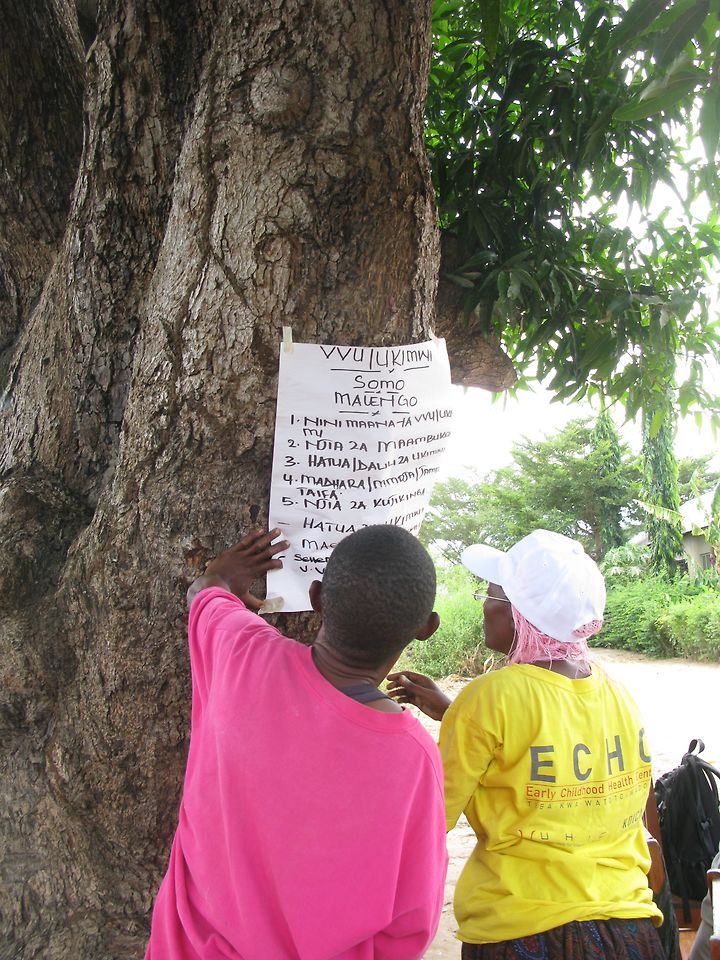 VVU/UKIMWI
SOMO
MALENGO
1. NINI MAANA YA VVU/UKI
MI
2. NJIA ZA MAAMBUKIZ
3. HATUA/DALILI ZA UKIMWI
4. MADHARA/MMOJA/JAMII
TAIFA.
5. NJIA ZA KUJIKINGA
- HATUA ZA UKIMWI
MAE
ECHO
Early Childhood Health
TIBA KWA WATOTO